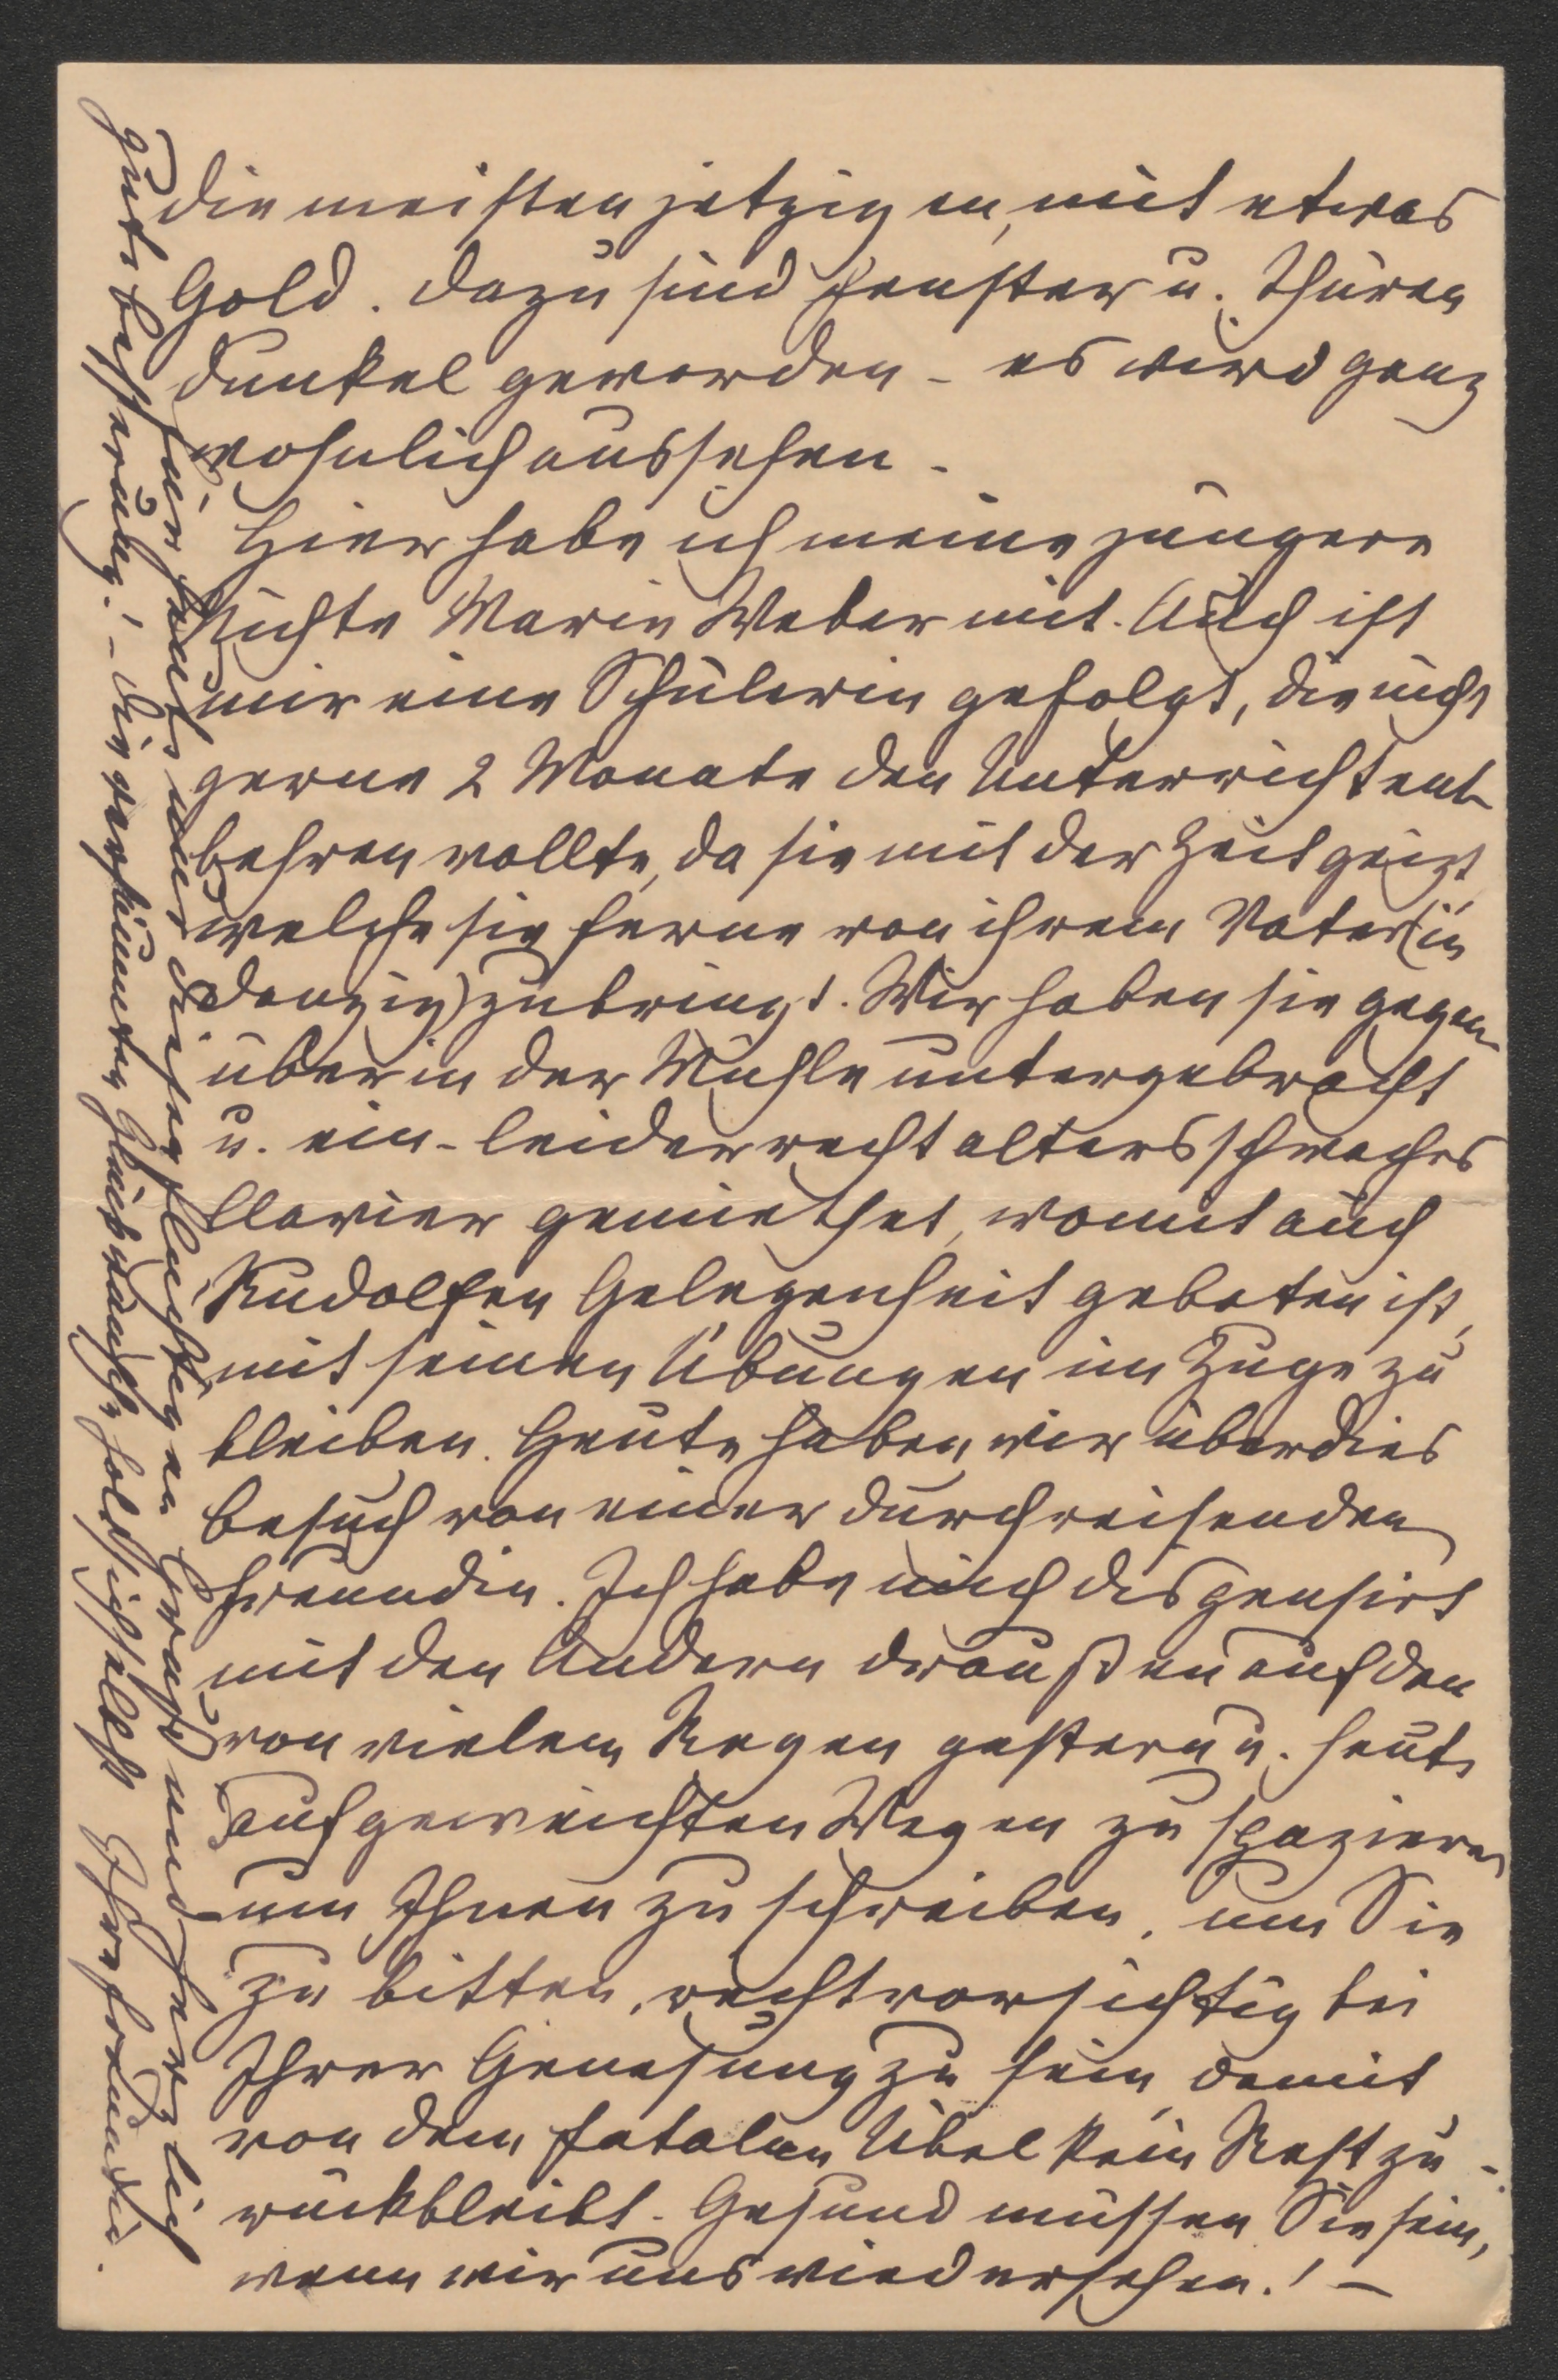 die meisten jetzigen, mit etwas
Gold. Dazu sind Fenster u. Thüren
dunkel geworden - es wird ganz
wohnlich aussehen.
Hier habe ich meine jüngere
Nichte Marie Weber mit. Auch ist
mir eine Schülerin gefolgt, die nicht
gerne 2 Monate den Unterricht ent-
behren wollte, da sie mit der Zeit geizt
welche sie ferne von ihrem Vater (in
Danzig) zubringt. Wir haben sie gegen-
über in der Mühle untergebracht
u. ein - leider recht altersschwaches
Clavier gemiethet, womit auch
Rudolfen Gelegenheit geboten ist,
mit seinen Übungen im Zuge zu
bleiben. Heute haben wir überdies
Besuch von einer durchreisenden
Freundin. Ich habe mich dispensirt
mit den Andern draußen auf den
von vielem Regen gestern u. heute
aufgeweichten Wegen zu spazieren
um Ihnen zu schreiben, um Sie
zu bitten, recht vorsichtig bei
Ihrer Genesung zu sein, damit
von dem fatalen Übel kein Rest zu-
rückbleibt. Gesund müssen Sie sein,
wenn wir uns wiedersehen! -
Für heute nur diesen flüchtigen Gruß und herzlich
gute Besserung! - Die versäumten Glückwünsche holt sich selbst Ihre Freundin.